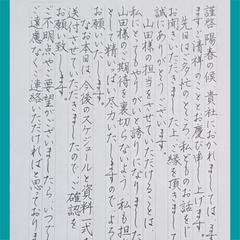 謹啓 陽春の候 貴社におかれましては
ますますご清祥のこととお慶び申し上げます。
先日はご多忙のところ、私どものお話をじ
お聞きいただきました上、ご縁を頂きまして
誠にありがとうございます。
山田様の担当をさせていただけることは
大変にありがたく誇りになりました。
山田様の期待を裏切らないよう、私も担
として精いっぱい尽力いたしますので、よろ
お願い致します。
なお本日は、今後のスケジュールと資料一式を
送付させていただきましたのでご確認を
お願い致します。
ご不明点やご要望がございましたら、いつで
ご遠慮なくご連絡いただければと思っており